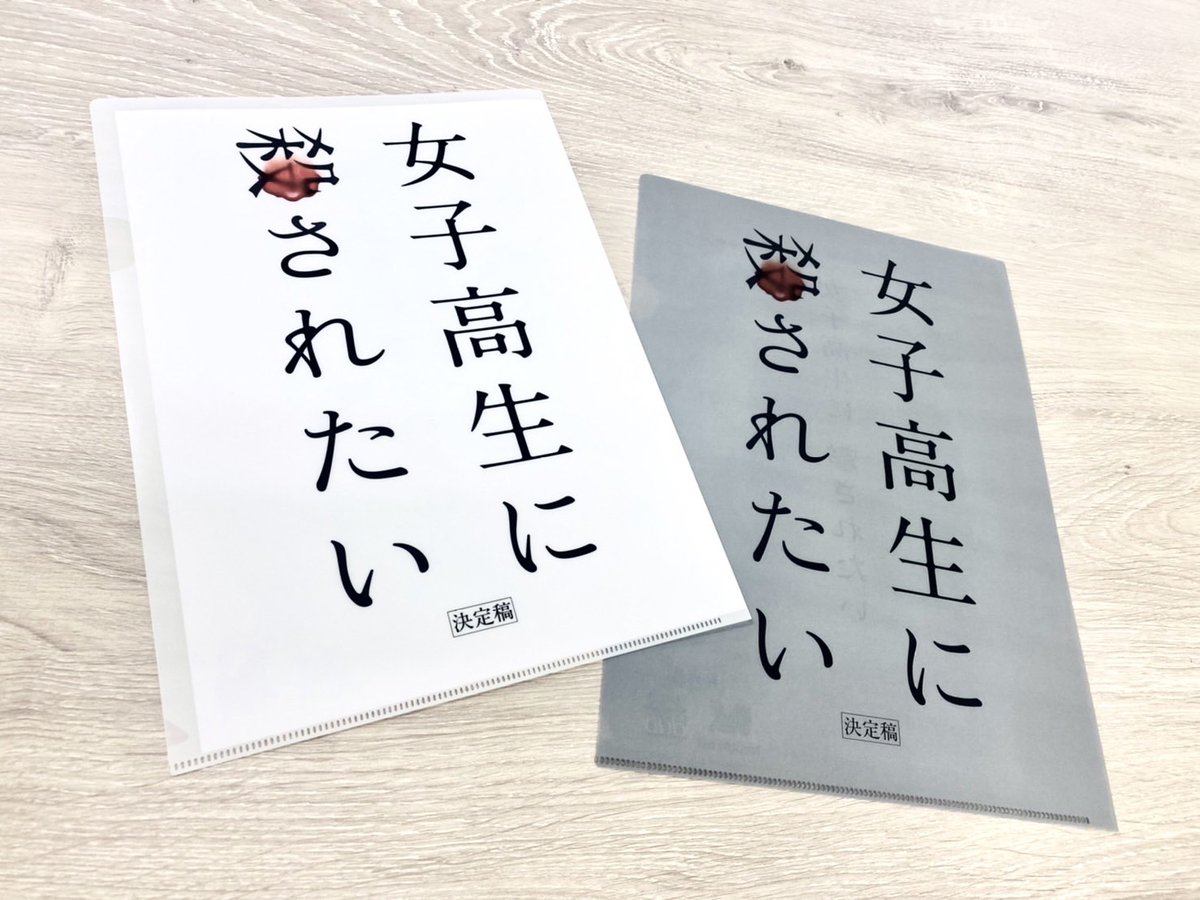 女子高生に
殺されたい
決定稿
女子高生に
殺されたい
決定稿